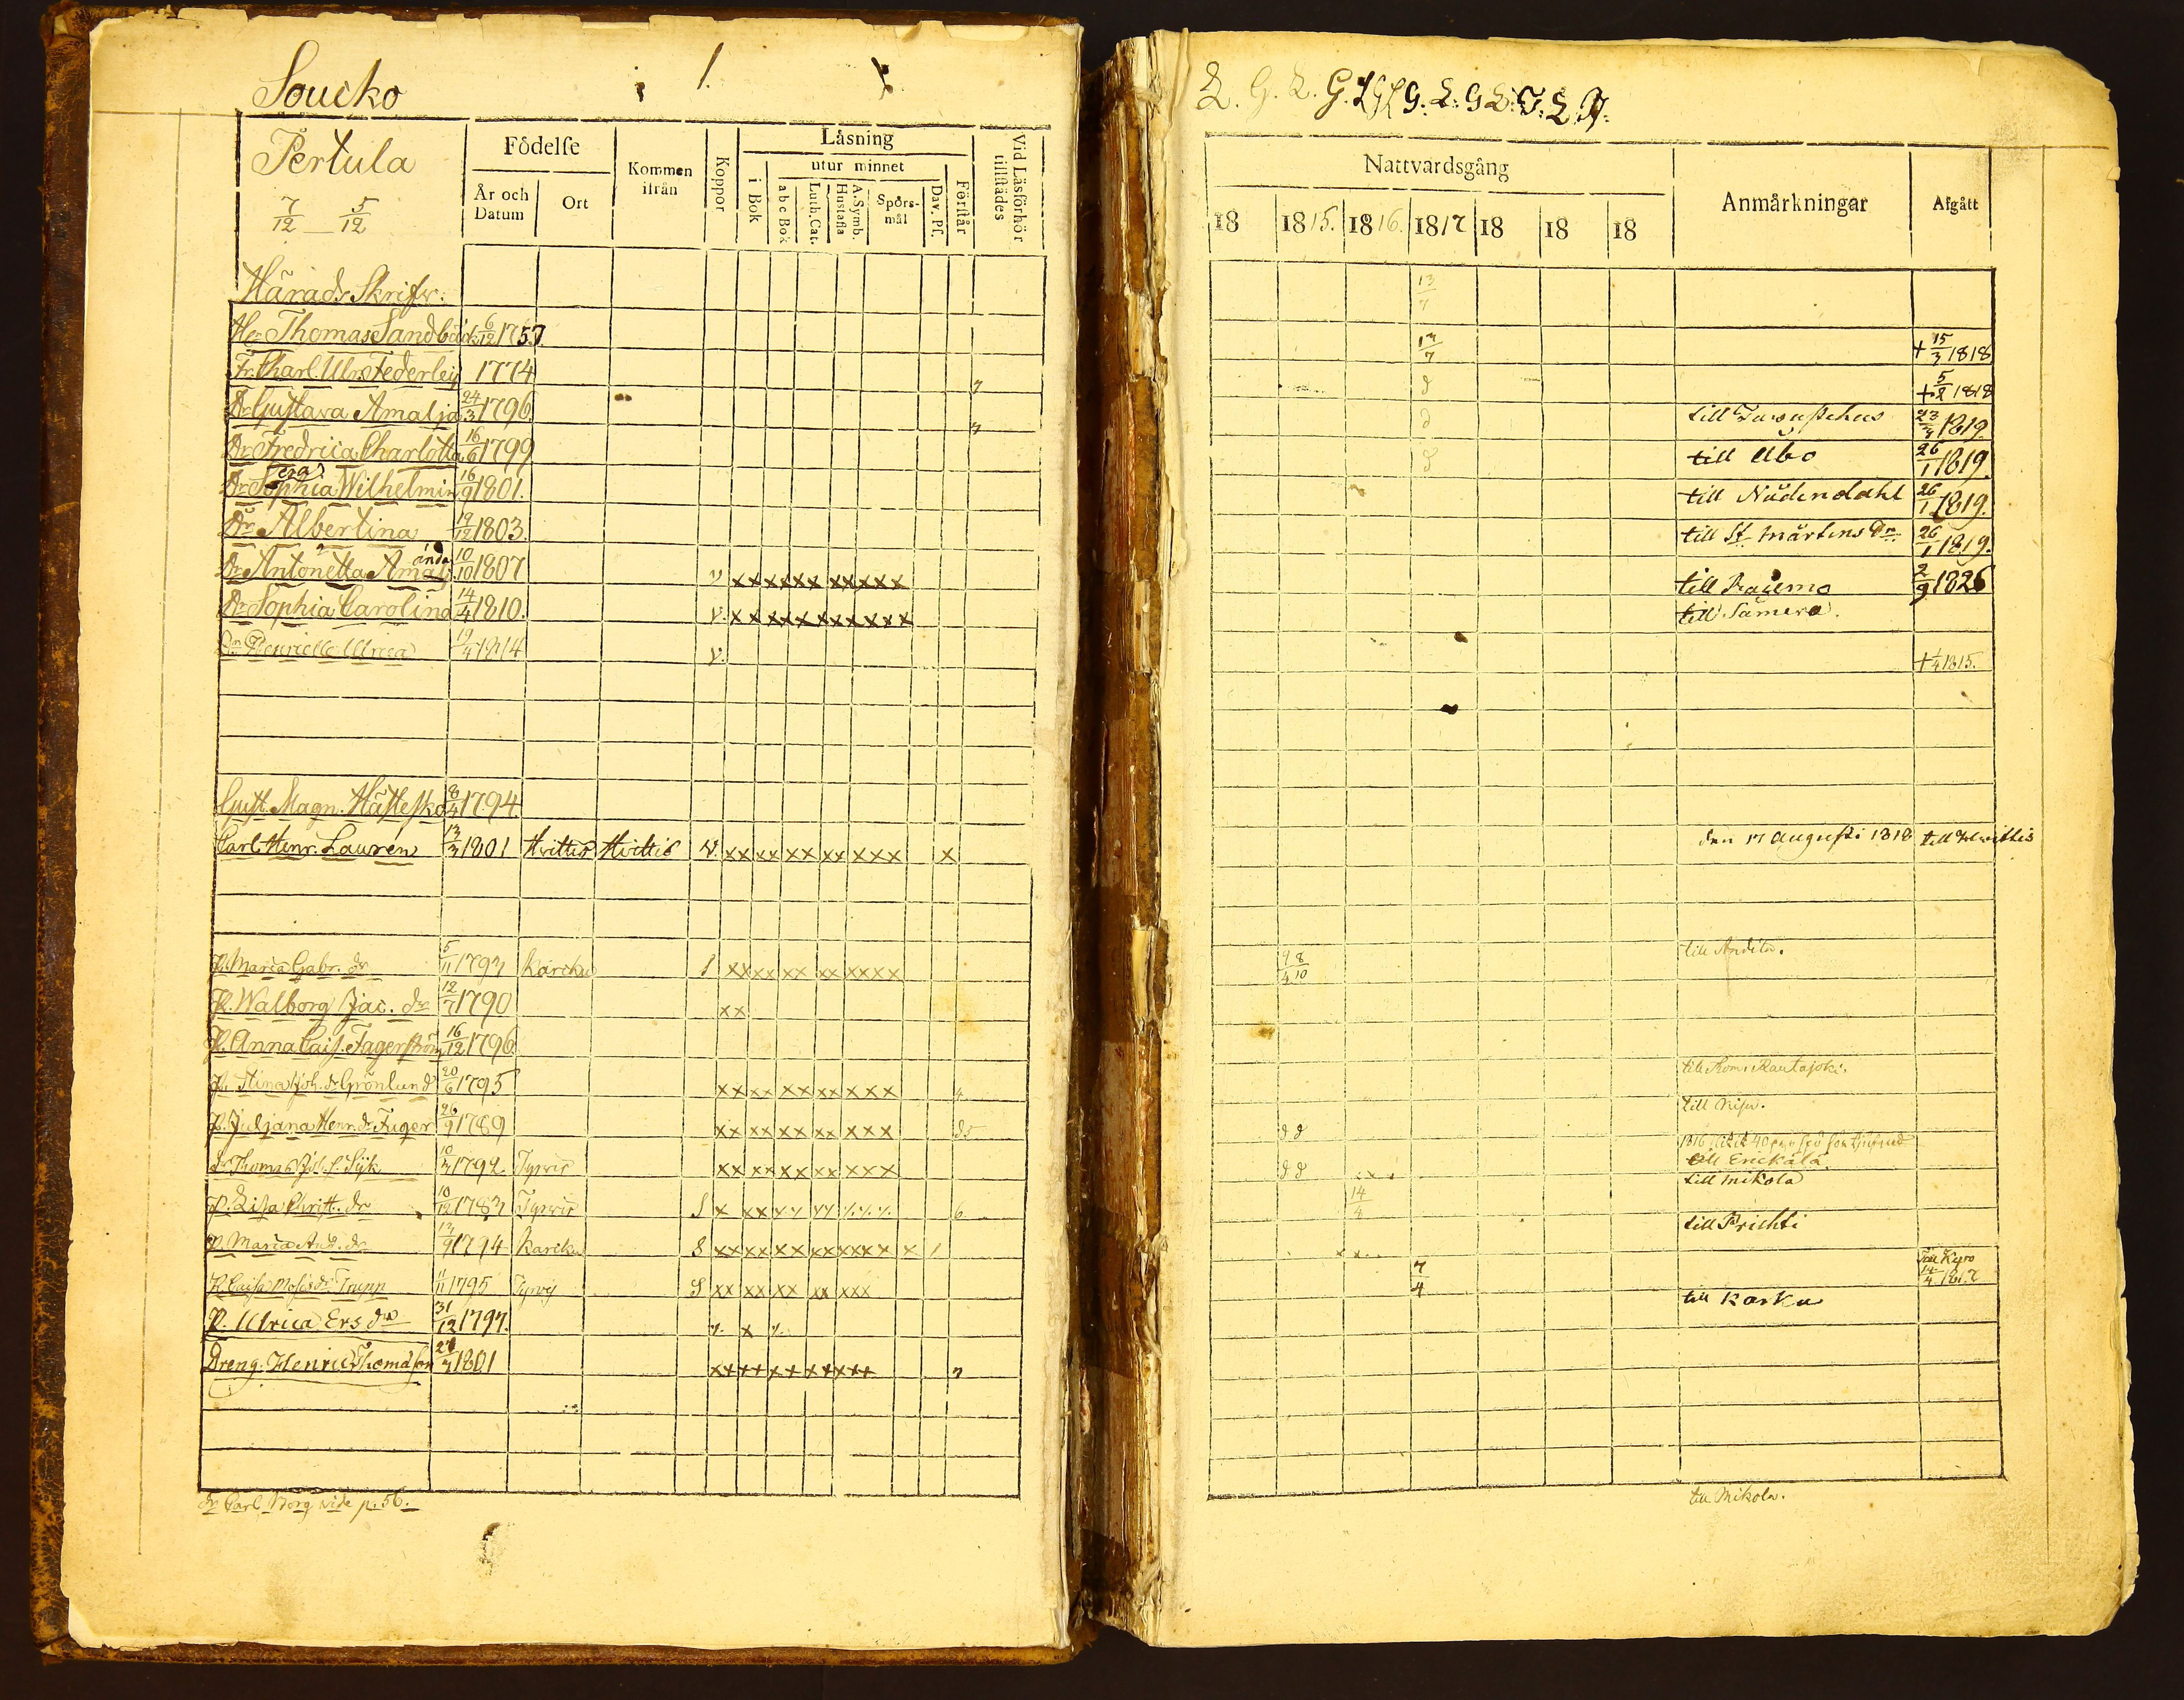 Soucko 1.
Pertula
7/12 5/12
Födelse
År och Datum
Ort
Kommen ifrån
Koppor
Läsning
utur minnet
i Bok
a b c Bok
Luth. Cat.
Hustafla
A. Symb.
Spörs-mål
Dav. Ps.
Förstår
Vid Läsförhör tillstädes
Härads Skrifv:
Hr Thomas Sandbäck 6/12 1757
Fr. Charl. Ulr. Federley 1774
Dr Gustava Amalja 24/3 1796
Dr Fredrica Charlotta 16/6 1799
Dr Sophia Wilhelmin 16/9 1801.
Dr Albertina 19/12 1803.
Dr Antonetta Amanda 10/10 1807 v xxxxxxx xxxxx
Dr Sophia Carolina 14/4 1810. v. xxxxxxxxxxxx
Dr Henriette Ulrica 19/4 1814 v.
Gust. Magn. Hästesko 8/4 1794
Carl Henr. Lauren 13/3 1801 Hvittis Hvittis v. xx xx xx xx xxx x
P. Maria Gabr. dr 5/11 1793 Karcku 1 xx xx xx xx xxxx
P. Walborg Jac. dr 12/7 1790 xx
P. Anna Cais. Fagerström 16/12 1796
P. Stina Joh. dr Grönlund 20/6 1795 xx xx xx xx xxx
P. Juljana Henr. dr Fuger 26/9 1789 xx xx xx xx xxx
dr Thomas Joh. s. Sjik 10/3 1792. Tyrvis xx xx xx xx xxx
P. Lisa Christ. dr 10/12 1783 Tyrvis S x xx xx xx 6
P. Maria And. dr 13/9 1794 Karcku S xx xx xx xxxxxx x 1
P. Caisa Mosis dr Trupp 11/11 1795 Tyrvis S xx xx xx xx xxx
P. Ulrica Ers dr 31/12 1797. x
Dreng. Henric Thomasson 1801
dr Carl Borg vide p. 56.
L. G. L. G. L G L G. L: G L: G. L G:
Nattvardsgång
Anmärkningar
Afgått
18 1815. 1816. 1817 18 18 18
13/7
13/7 + 15/3 1818
+ 5/2 1818
till Tavastehus 23/4 1819
till Åbo 26/1 1819.
till Nådendahl 26/1 1819.
till St Mårtens dr 26/1 1819.
till Raumo 2/9 1826
till Sämera.
+ 1/4 1815.
den 17 Augusti 1818 till Hwittis
till Andila.
till Kom. Rautajoki.
till Erickälä
till Mikola
14/4
till Prichti
7/4 Till Kyro 14/4 1817
till Karku
till Mikola.